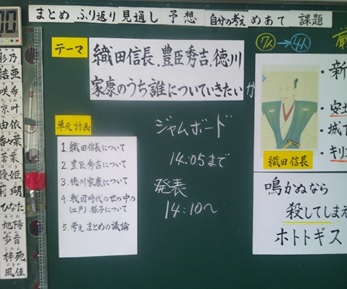 まとめ ふり返り 見通し 予想 自分の考え めあて 課題
テーマ
織田信長、豊臣秀吉、徳川
家康のうち誰についていきたいか
単元計画
1 織田信長について
2 豊臣秀吉について
3 徳川家康について
4 戦国時代の世の中の
(江戸) 様子について
5 考え まとめの議論
ジャムボード
14:05まで
発表
14:10〜
7人 → 4人
織田信長
・新
・安土
城下
・キリ
鳴かぬなら
殺してしまえ
ホトトギス